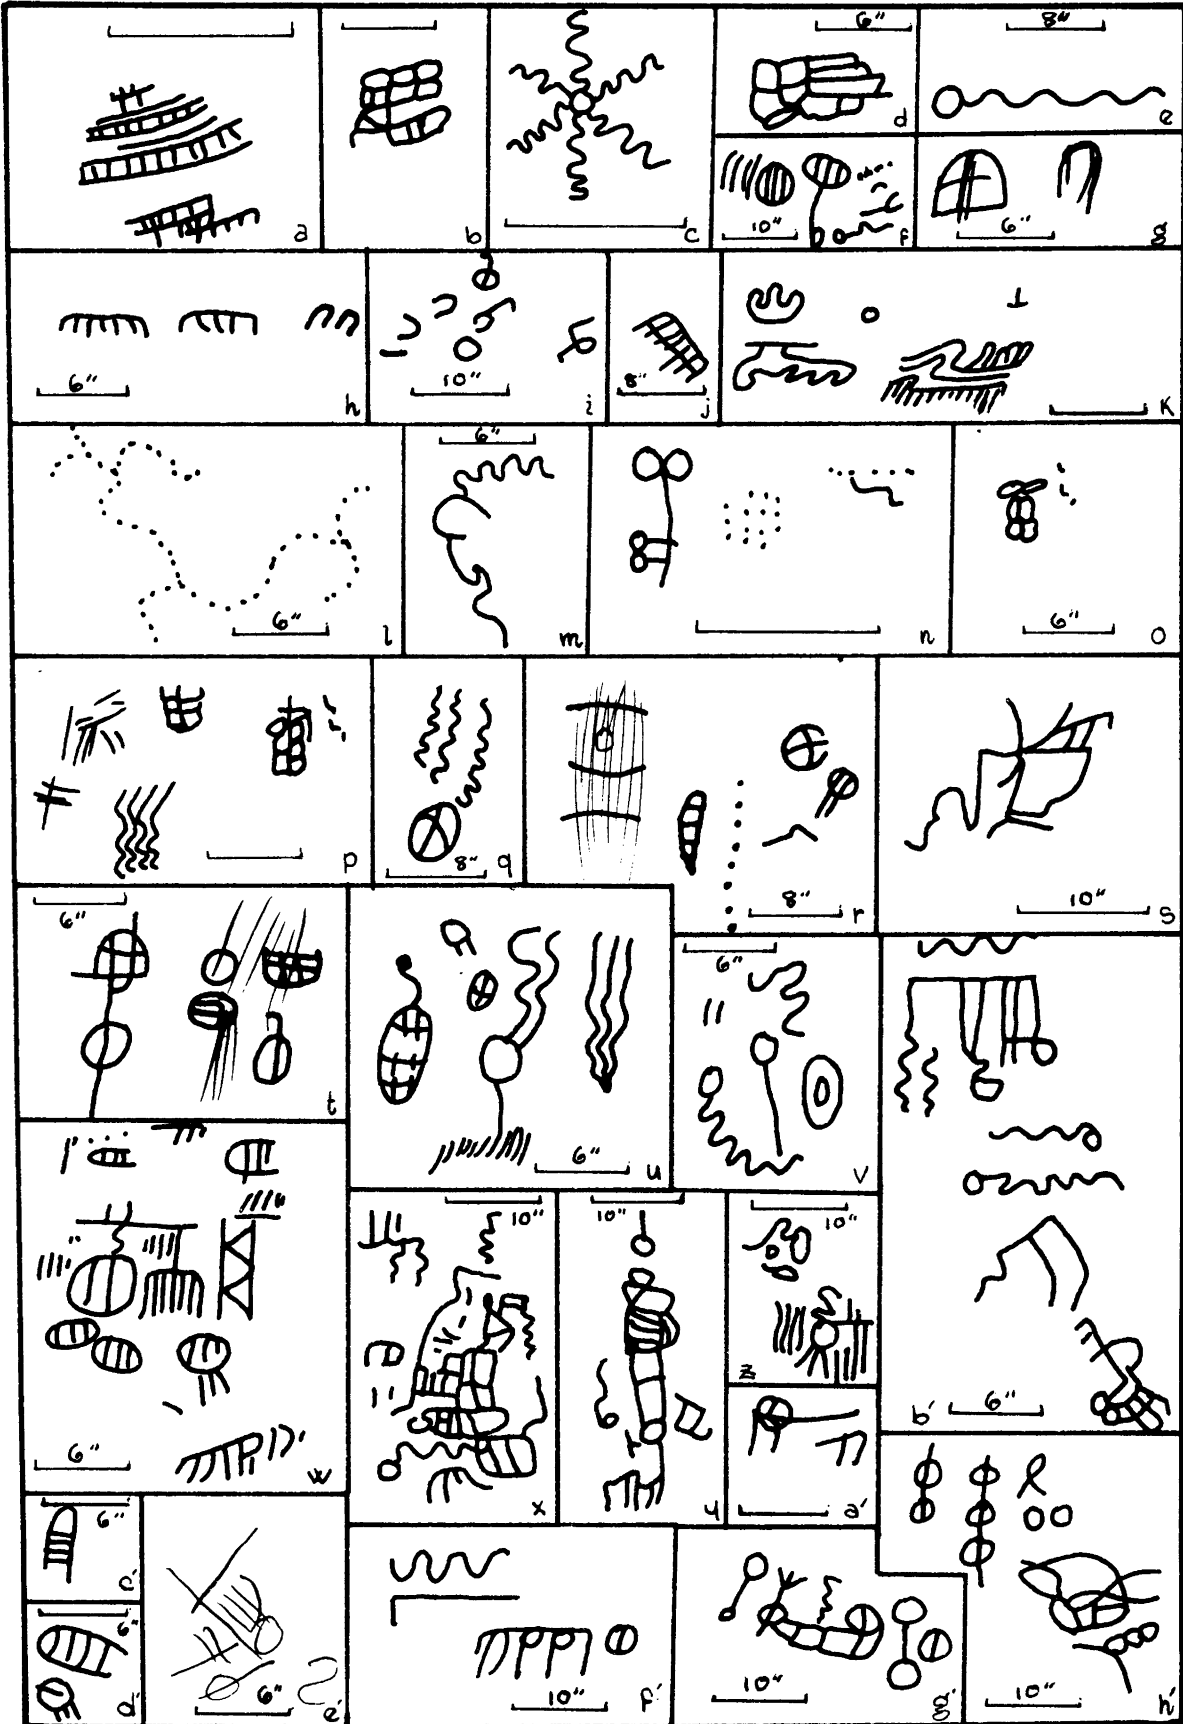 a
b
c
6"
d
8"
e
10"
f
6"
g
6"
h
10"
i
8"
j
k
6"
l
6"
m
n
6"
o
p
8"
q
8"
r
10"
s
6"
t
6"
u
6"
v
6"
w
10"
x
10"
y
10"
z
a'
6"
b'
6"
c'
6"
d'
6"
e'
10"
f'
10"
g'
10"
h'